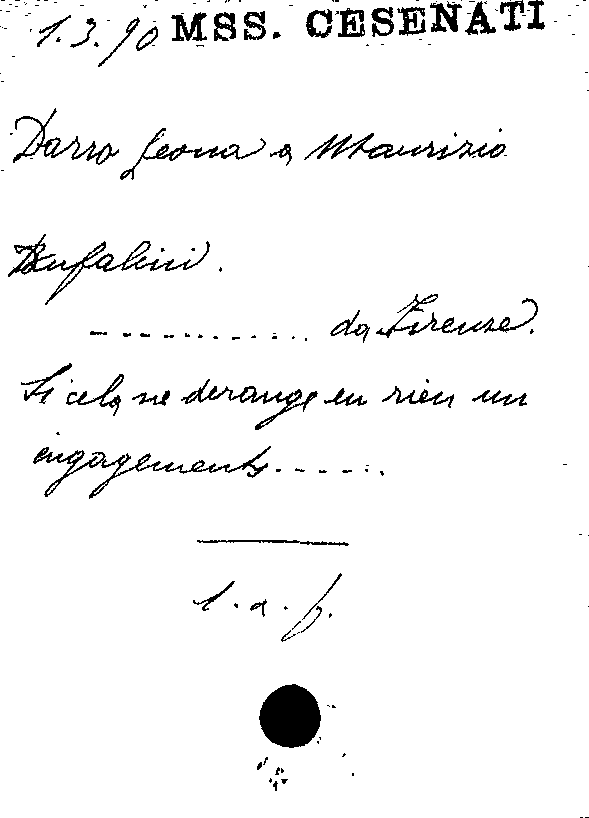 1.3.90 MSS. CESENATI
Darro Leona a Maurizio
Bufalini.
............ da Firenze.
Si cela ne derange en rien un
engagements......
1. a. f.